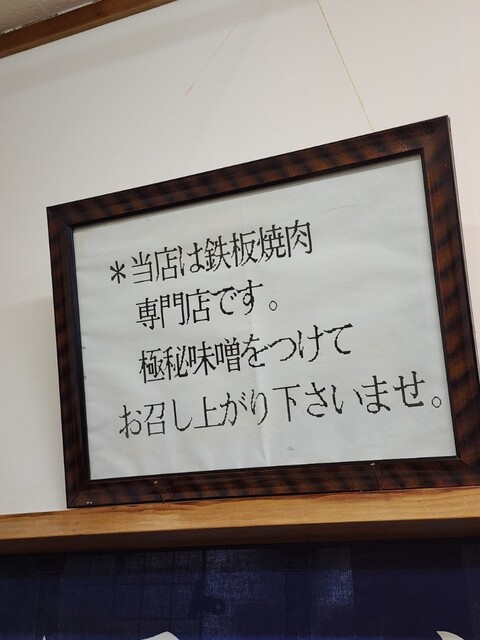 ＊当店は鉄板焼肉
専門店です。
極秘味噌をつけて
お召し上がり下さいませ。